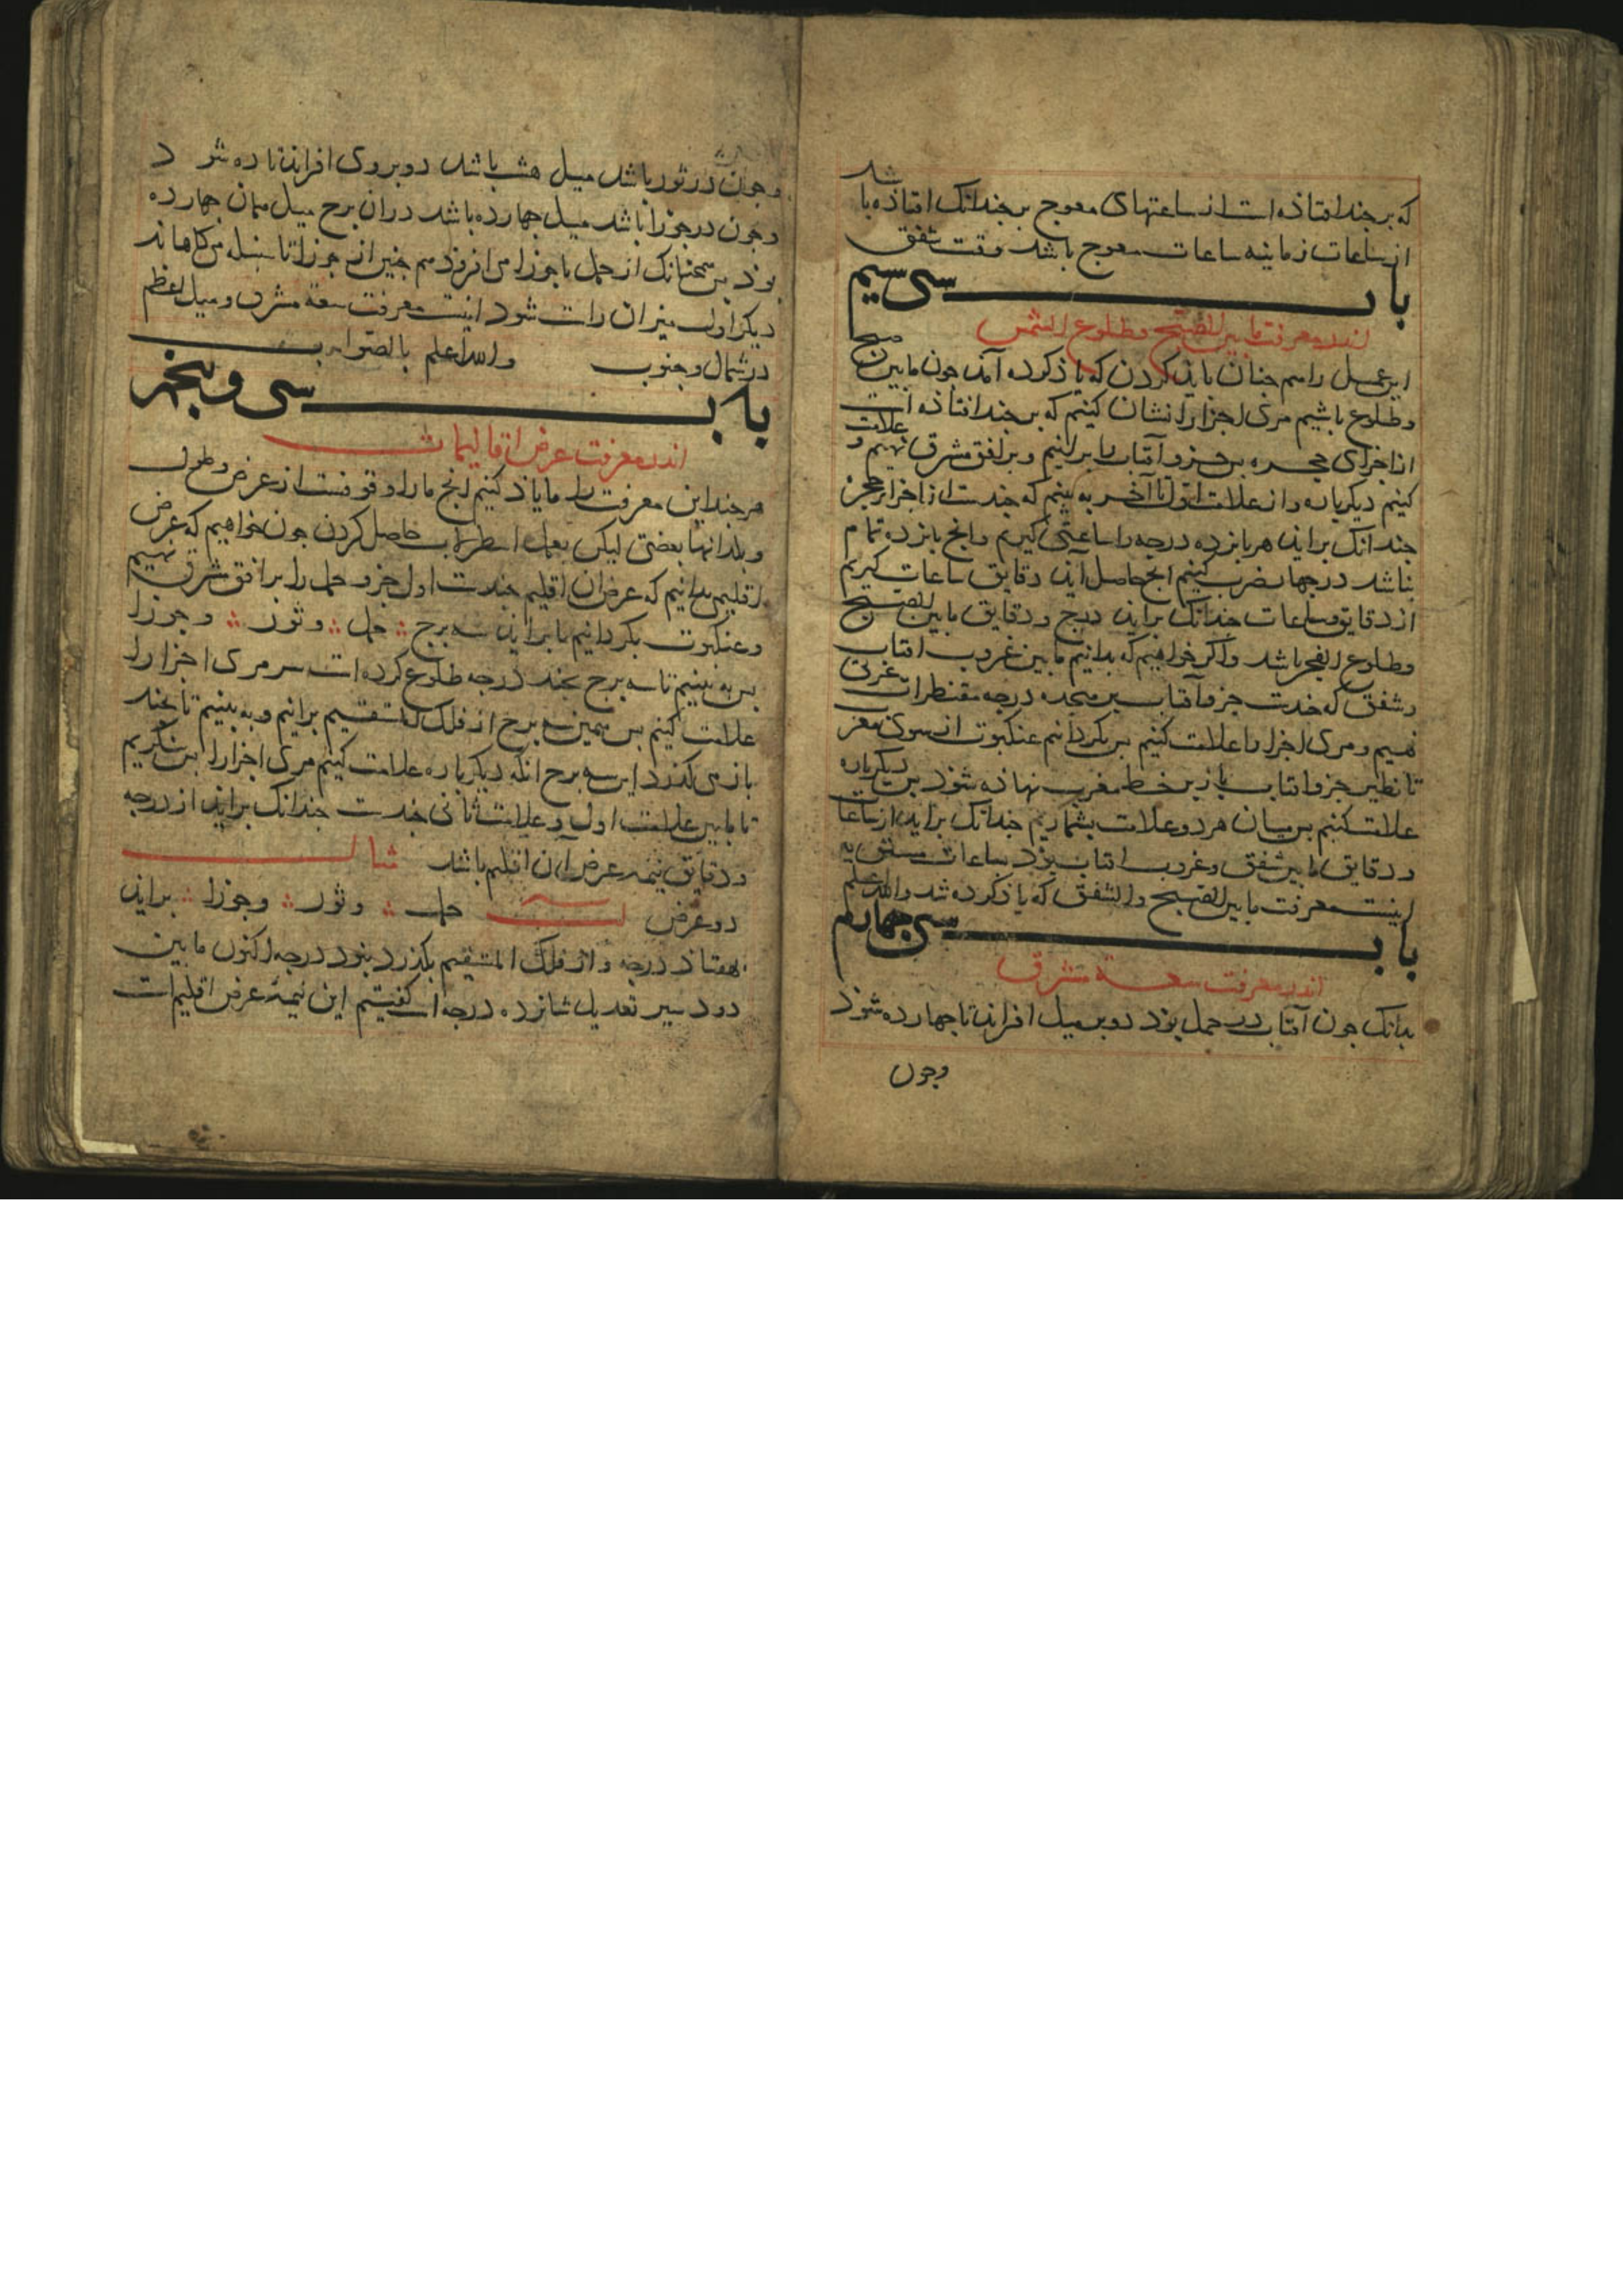 که بر چند افتاذه است از ساعتهای معوج بر چندانک افتاذه باشد
از ساعات زمانیه ساعات معوج باشد وقت شفق
باب سی سیم
اندر معرفت ما بین الصبح وطلوع الشمس
این عمل را هم جنان باید کردن که یاذ کرده آمد جون ما بین صبح
وطلوع باشیم مری اجزا را نشان کنیم که بر چند افتاذه است
از اجزای حجره بس جزو آفتاب را برانیم و بر افق مشرق نهیم و علامت
کنیم دیکرباره و از علامت اول تا آخر به بینم که جندست از اجزا حجره
جندانک براید هر بانزده درجه را ساعتی کیریم وانج بانزده تمام
نباشد در جهار ضرب کنیم انج حاصل آید دقایق ساعات کیریم
از دقایق وساعات جندانک براید درج ودقایق ما بین الصبح
وطلوع الفجر باشد واکر خواهیم که بدانیم ما بین غروب افتاب
وشفق که جندست جزو آفتاب بر هجده درجه مقنطرات غربی
نهیم ومری اجزا را علامت کنیم بس بکردانیم عنکبوت از سوی مغرب
تا نظیر جزو افتاب باز بر خط مغرب نهاذه شوذ بس دیکرباره
علامت کنیم بس میان هر دو علامت بشماریم جندانک براید از ساعات
ودقایق ما بین شفق وغروب افتاب بوذ ساعات مستویه
اینست معرفت ما بین الصبح والشفق که یاذ کرده شد والله اعلم
باب سی جهارم
اندر معرفت سعة مشرق
بدانک جون آفتاب در حمل بوذ دو بر میل افزاید تا جهارده شوذ
وجون
وجون در ثور باشد میل هشت باشد دو بر وی افزاید تا ده شود
وجون در جوزا باشد میل جهارده باشد در ان برج میل همان جهارده
بوذ بس همجنانک از حمل با جوزا می افزوذ هم جنین از جوزا تا سنبله می کاهاند
دیکر اول میزان راست شود اینست معرفت سعة مشرق ومیل اعظم
در شمال وجنوب والله اعلم بالصواب
باب سی و بنجم
اندر معرفت عرض اقالیمات
هر جند این معرفت را ما یاذ کنیم انج ما را وقوفست از عرض وطول
وبلدانها بعضی لیکن بعمل اسطرلاب حاصل کردن جون خواهیم که عرض
اقلیم بدانیم که عرض ان اقلیم جندست اول جزو حمل را بر افق مشرق نهیم
وعنکبوت بکردانیم تا براید سه برج حمل وثور وجوزا
بس به بینیم تا سه برج بجند درجه طلوع کرده است سر مری اجزا را
علامت کنیم بس همین سه برج از فلک المستقیم برانیم وبه بینیم تا بجند
باز می کذرد این سه برج انکه دیکرباره علامت کنیم مری اجزا را بس بنکریم
تا ما بین علامت اول وعلامت ثانی جندست جندانک براید از درجه
ودقایق نیمه عرض آن اقلیم باشد مثال
دو عرض حمل وثور وجوزا براید
بهفتاذ درجه واز فلک المستقیم بکذرد بنود درجه اکنون ما بین
دود سیر تعدیل شانزده درجه است کفتیم این نیمه عرض اقلیم است